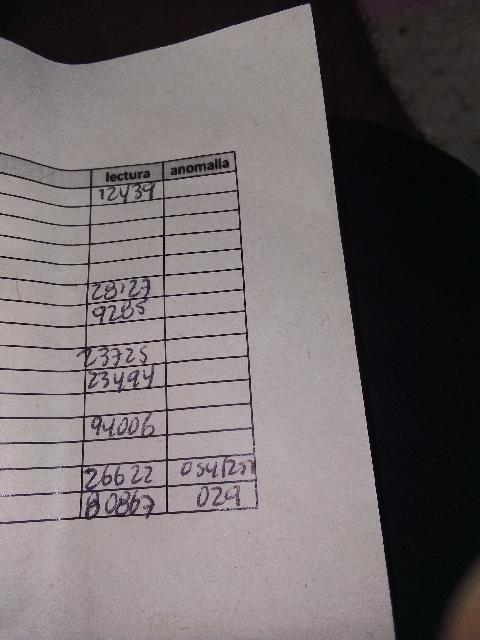 lectura anomalia
12439
28127
9285
23725
23494
94006
26622
80867 029